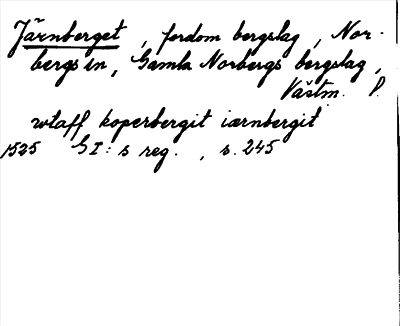 Järnberget, fordom bergslag, Nor-
bergs sn, Gamla Norbergs bergslag,
Västm. l.
wtaff koperbergit iærnbergit
1525 GI:s reg., s. 245